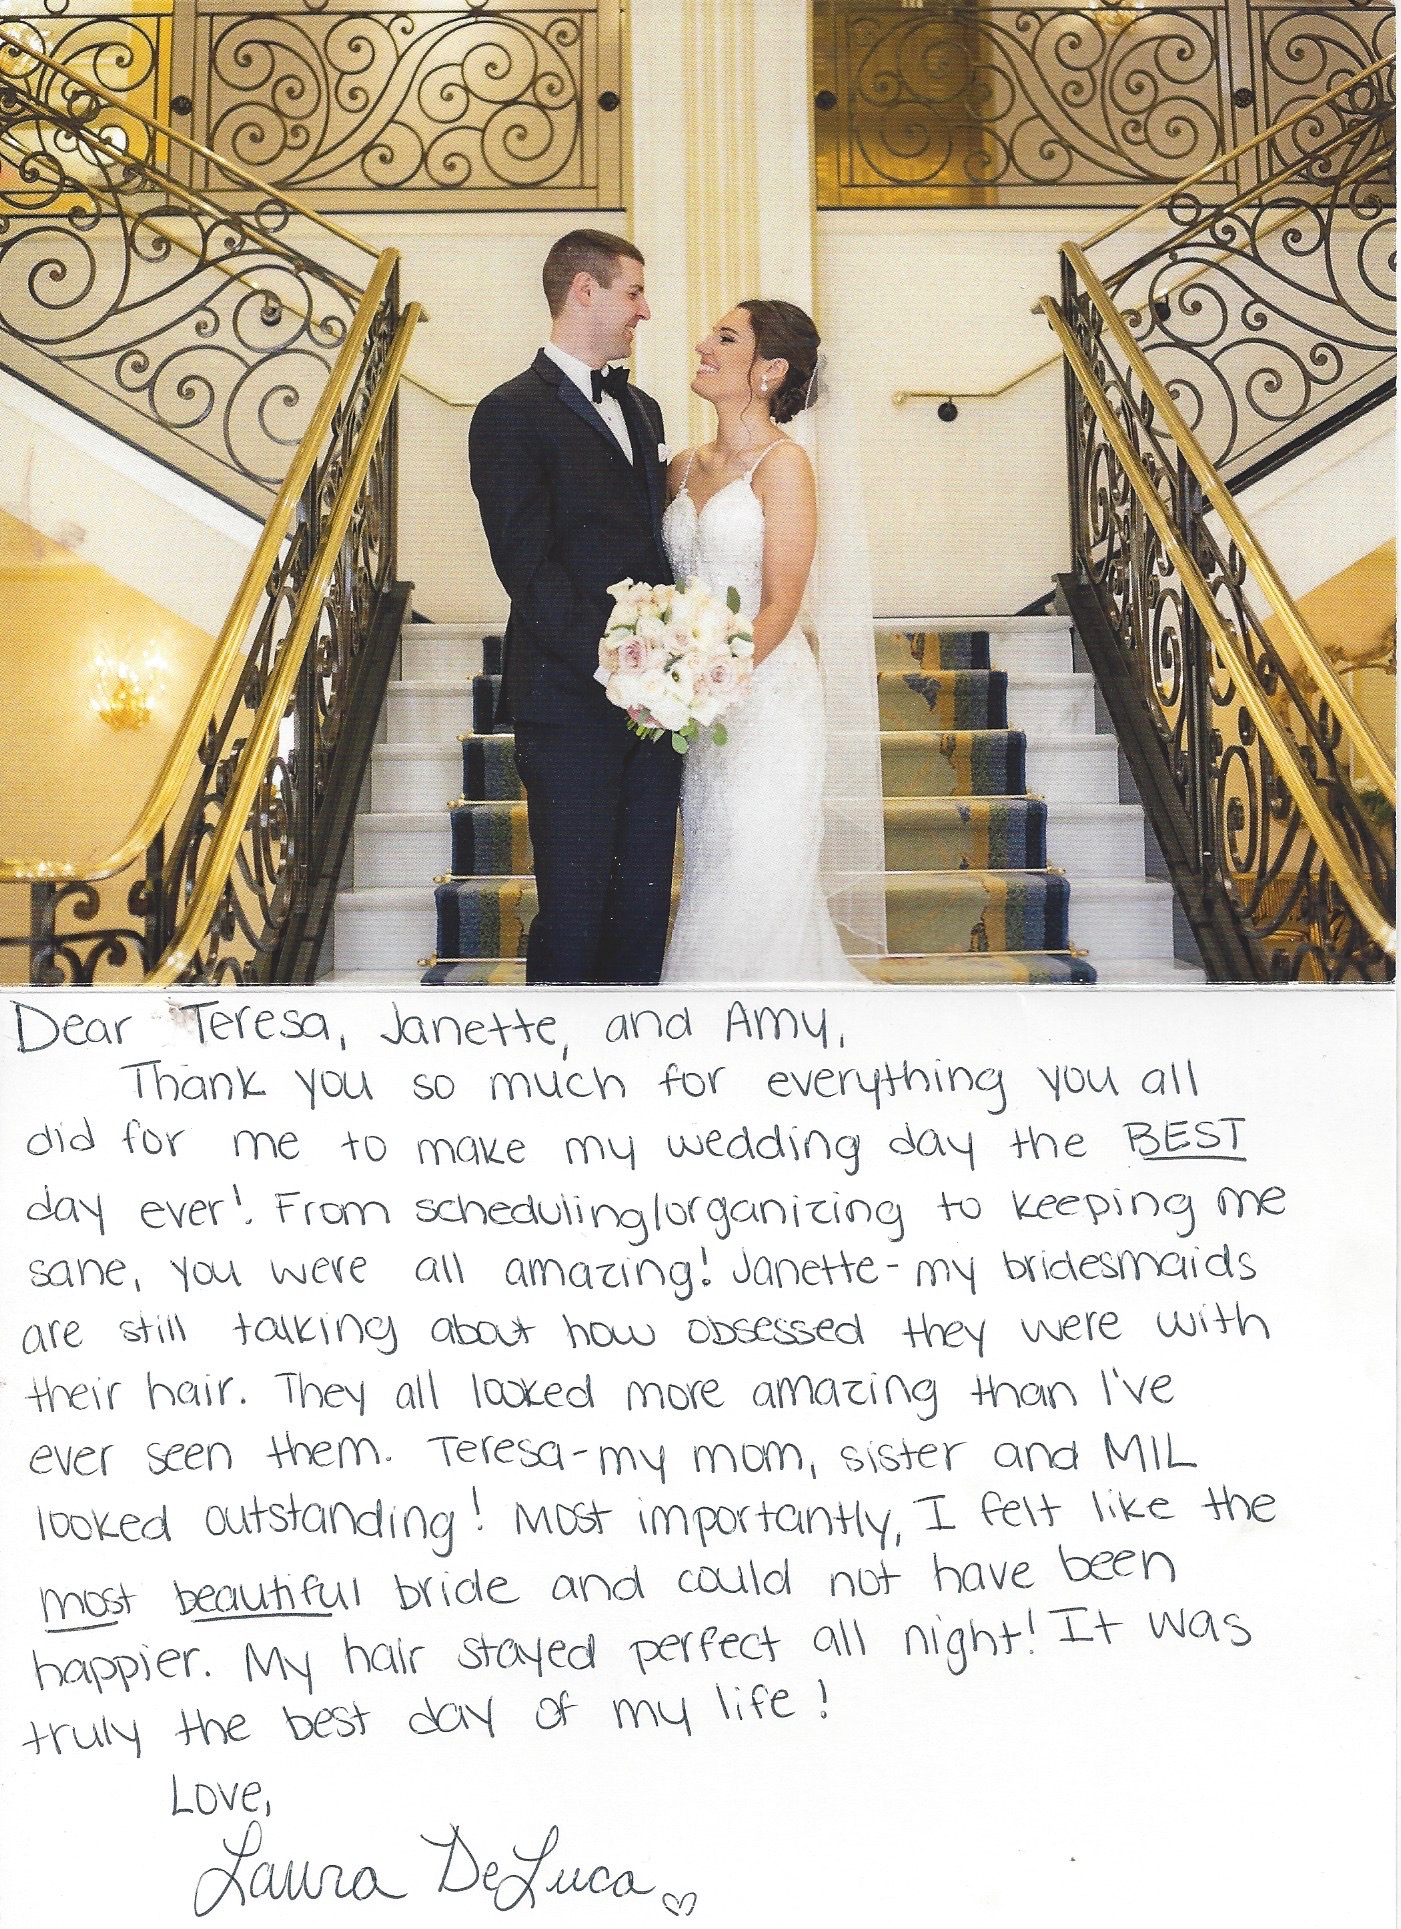 Dear Teresa, Janette, and Amy,
Thank you so much for everything you all
did for me to make my wedding day the BEST
day ever! From scheduling/organizing to keeping me
sane, you were all amazing! Janette - my bridesmaids
are still talking about how obsessed they were with
their hair. They all looked more amazing than I've
ever seen them. Teresa - my mom, sister and MIL
looked outstanding! Most importantly, I felt like the
most beautiful bride and could not have been
happier. My hair stayed perfect all night! It was
truly the best day of my life!
Love,
Laura DeLuca ♡